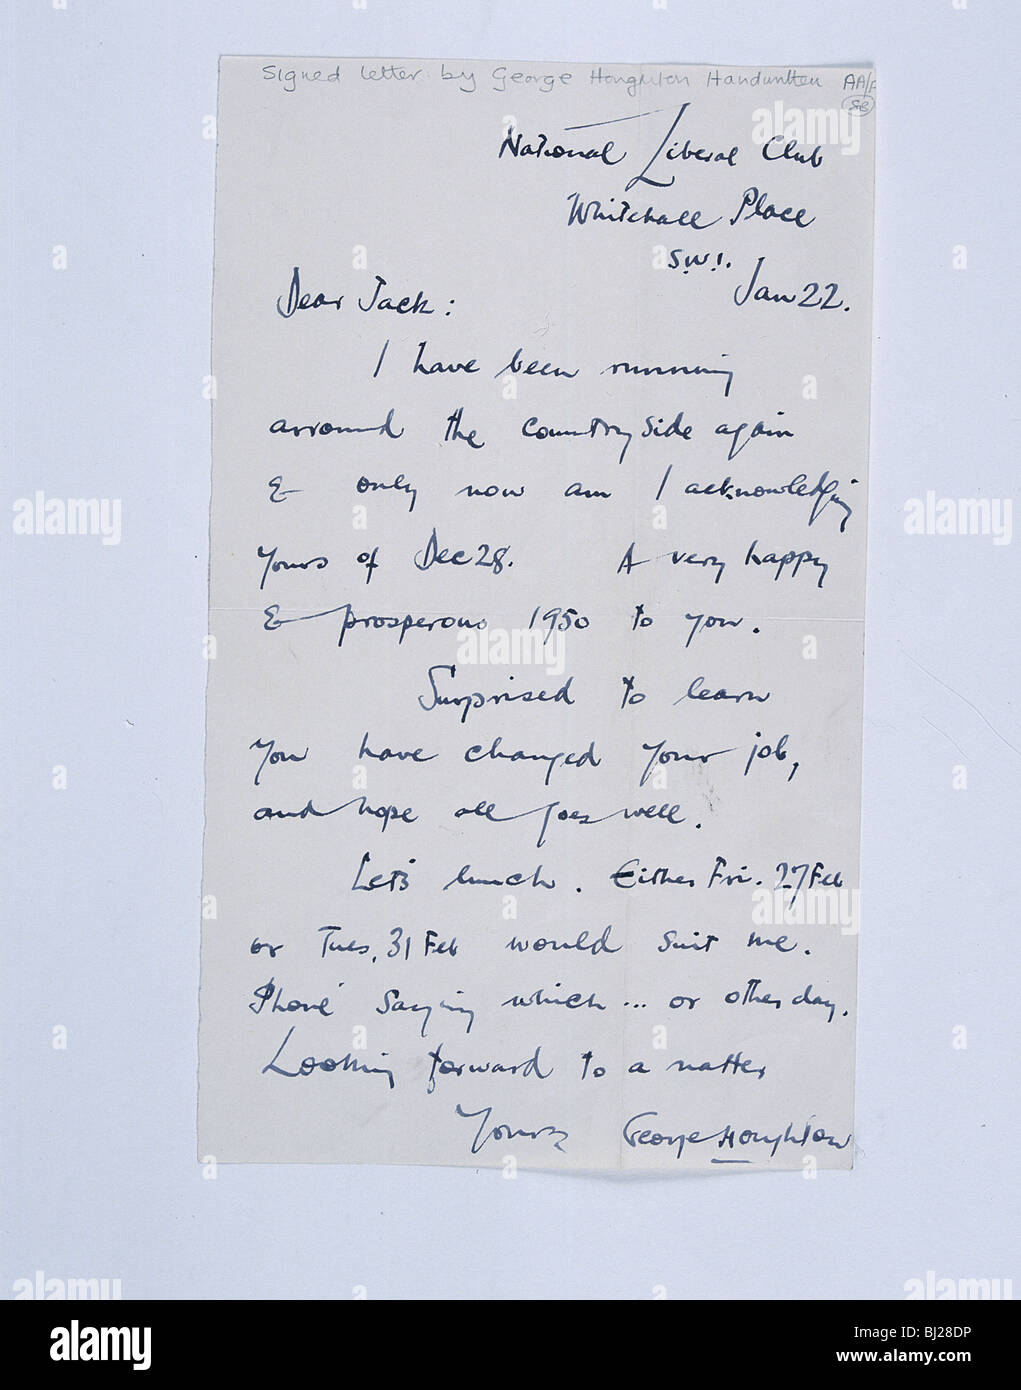 Signed letter by George Houghton Handwritten AA/
SB
National Liberal Club
Whitehall Place
S.W.1.
Jan 22.
Dear Jack:
I have been running
arround the countryside again
& only now am I acknowledging
yours of Dec 28. A very happy
& prosperous 1950 to you.
Surprised to learn
you have changed your job,
and hope all goes well.
Let's lunch. Either Fri. 27 Feb
or Tues, 31 Feb would suit me.
'Phone' saying which... or other day.
Looking forward to a natter
Yours George Houghton
alamy
alamy
Image ID: BJ28DP
www.alamy.com